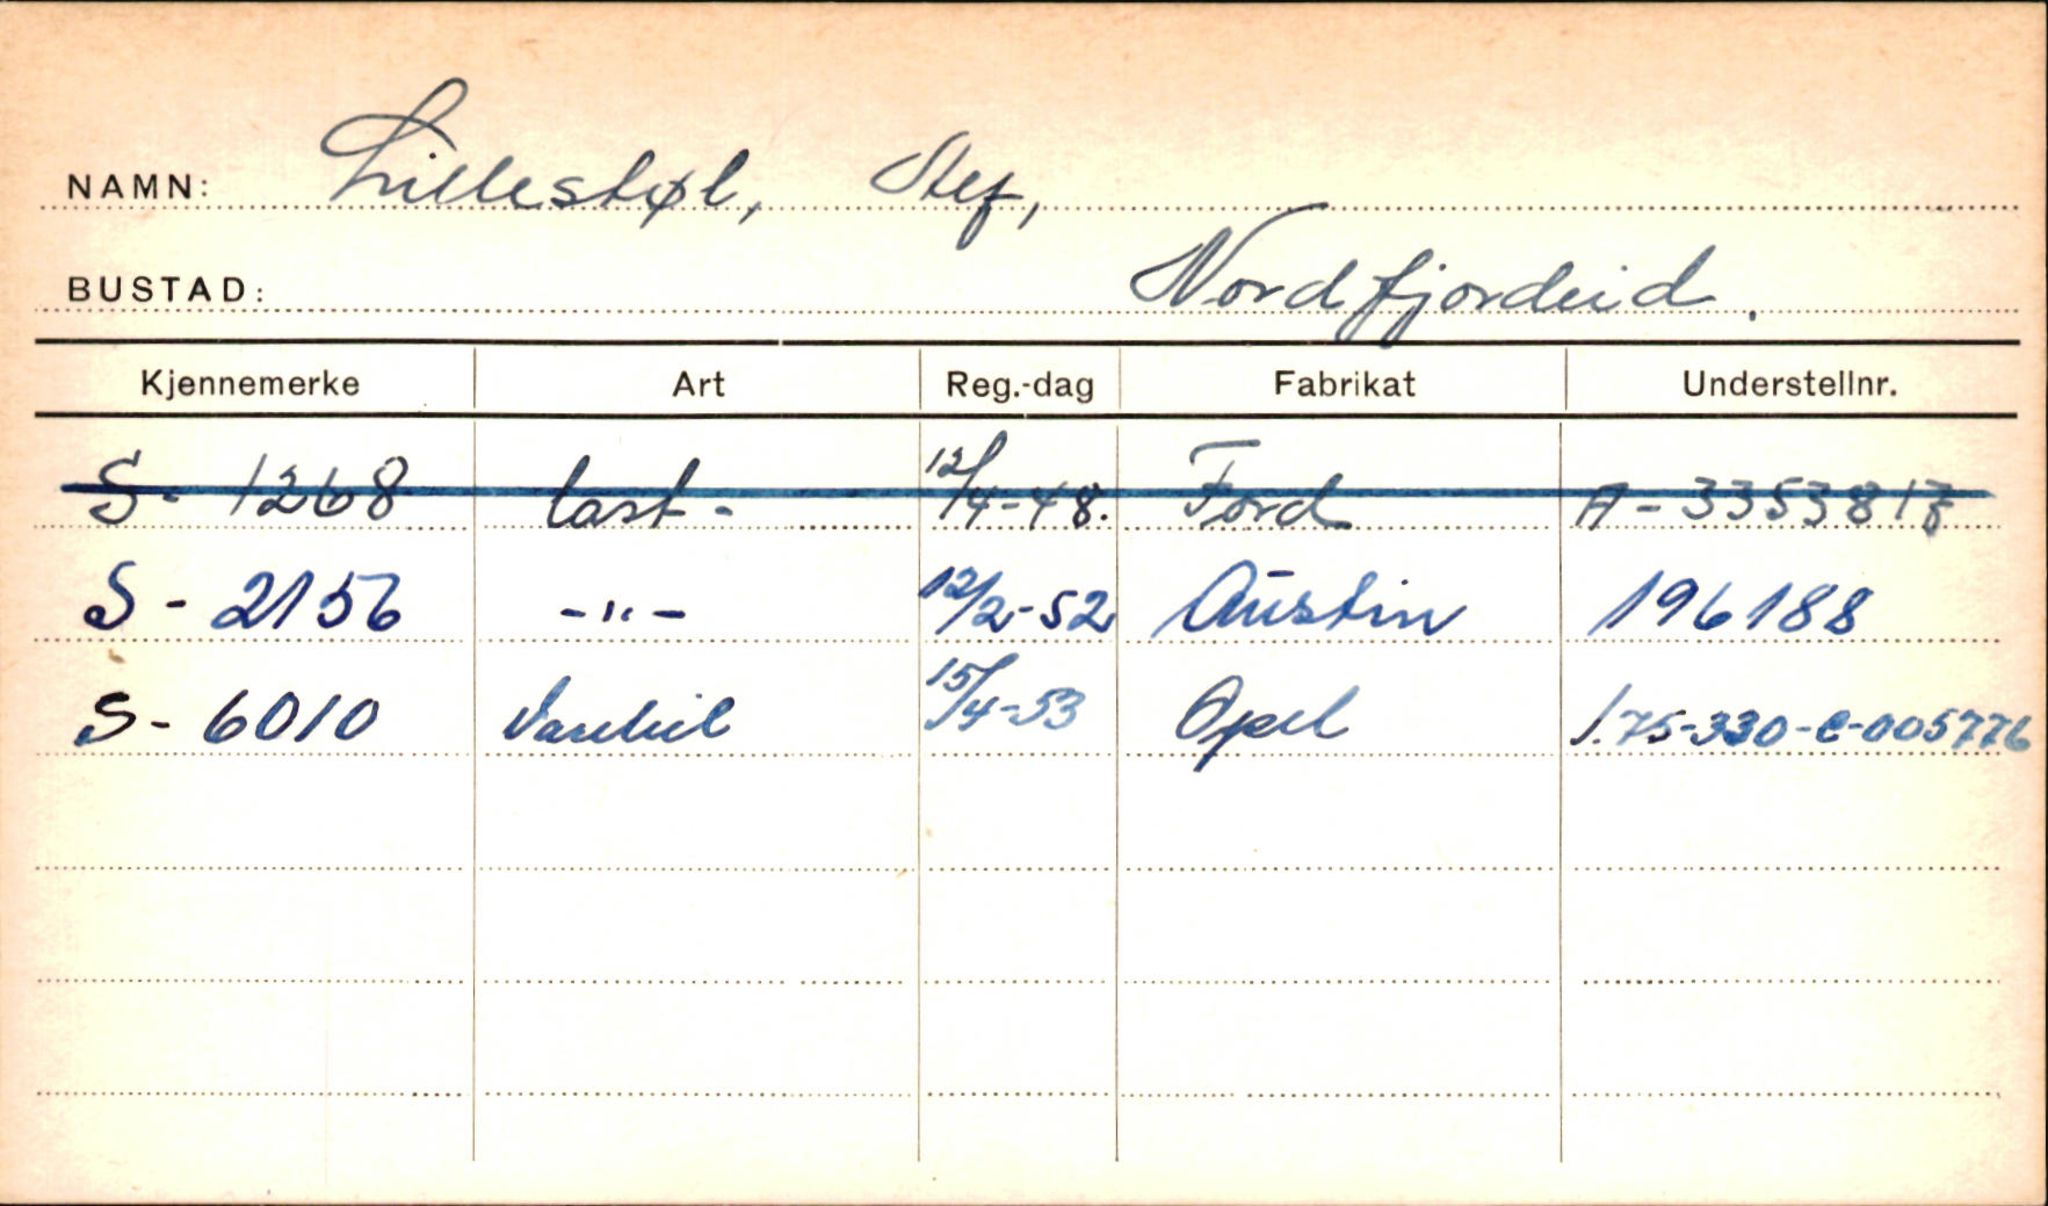 NAMN: Lillestøl, Stef,
BUSTAD: Nordfjordeid.
Kjennemerke Art Reg.-dag Fabrikat Understellnr.
S - 1268 last - 12/4-48. Ford A - 3353817
S - 2156 -"- 12/2-52 Austin 196188
S - 6010 Varebil 15/4-53 Opel 1.75-330-C-005776